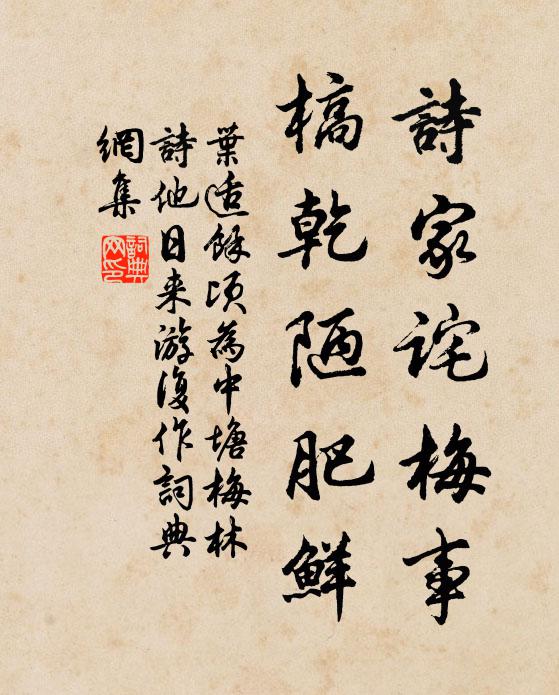 詩家詫梅事
槁乾陋肥鮮
葉适餘頃為中塘梅林
詩他日来游復作詞典
網集
詞典
网印